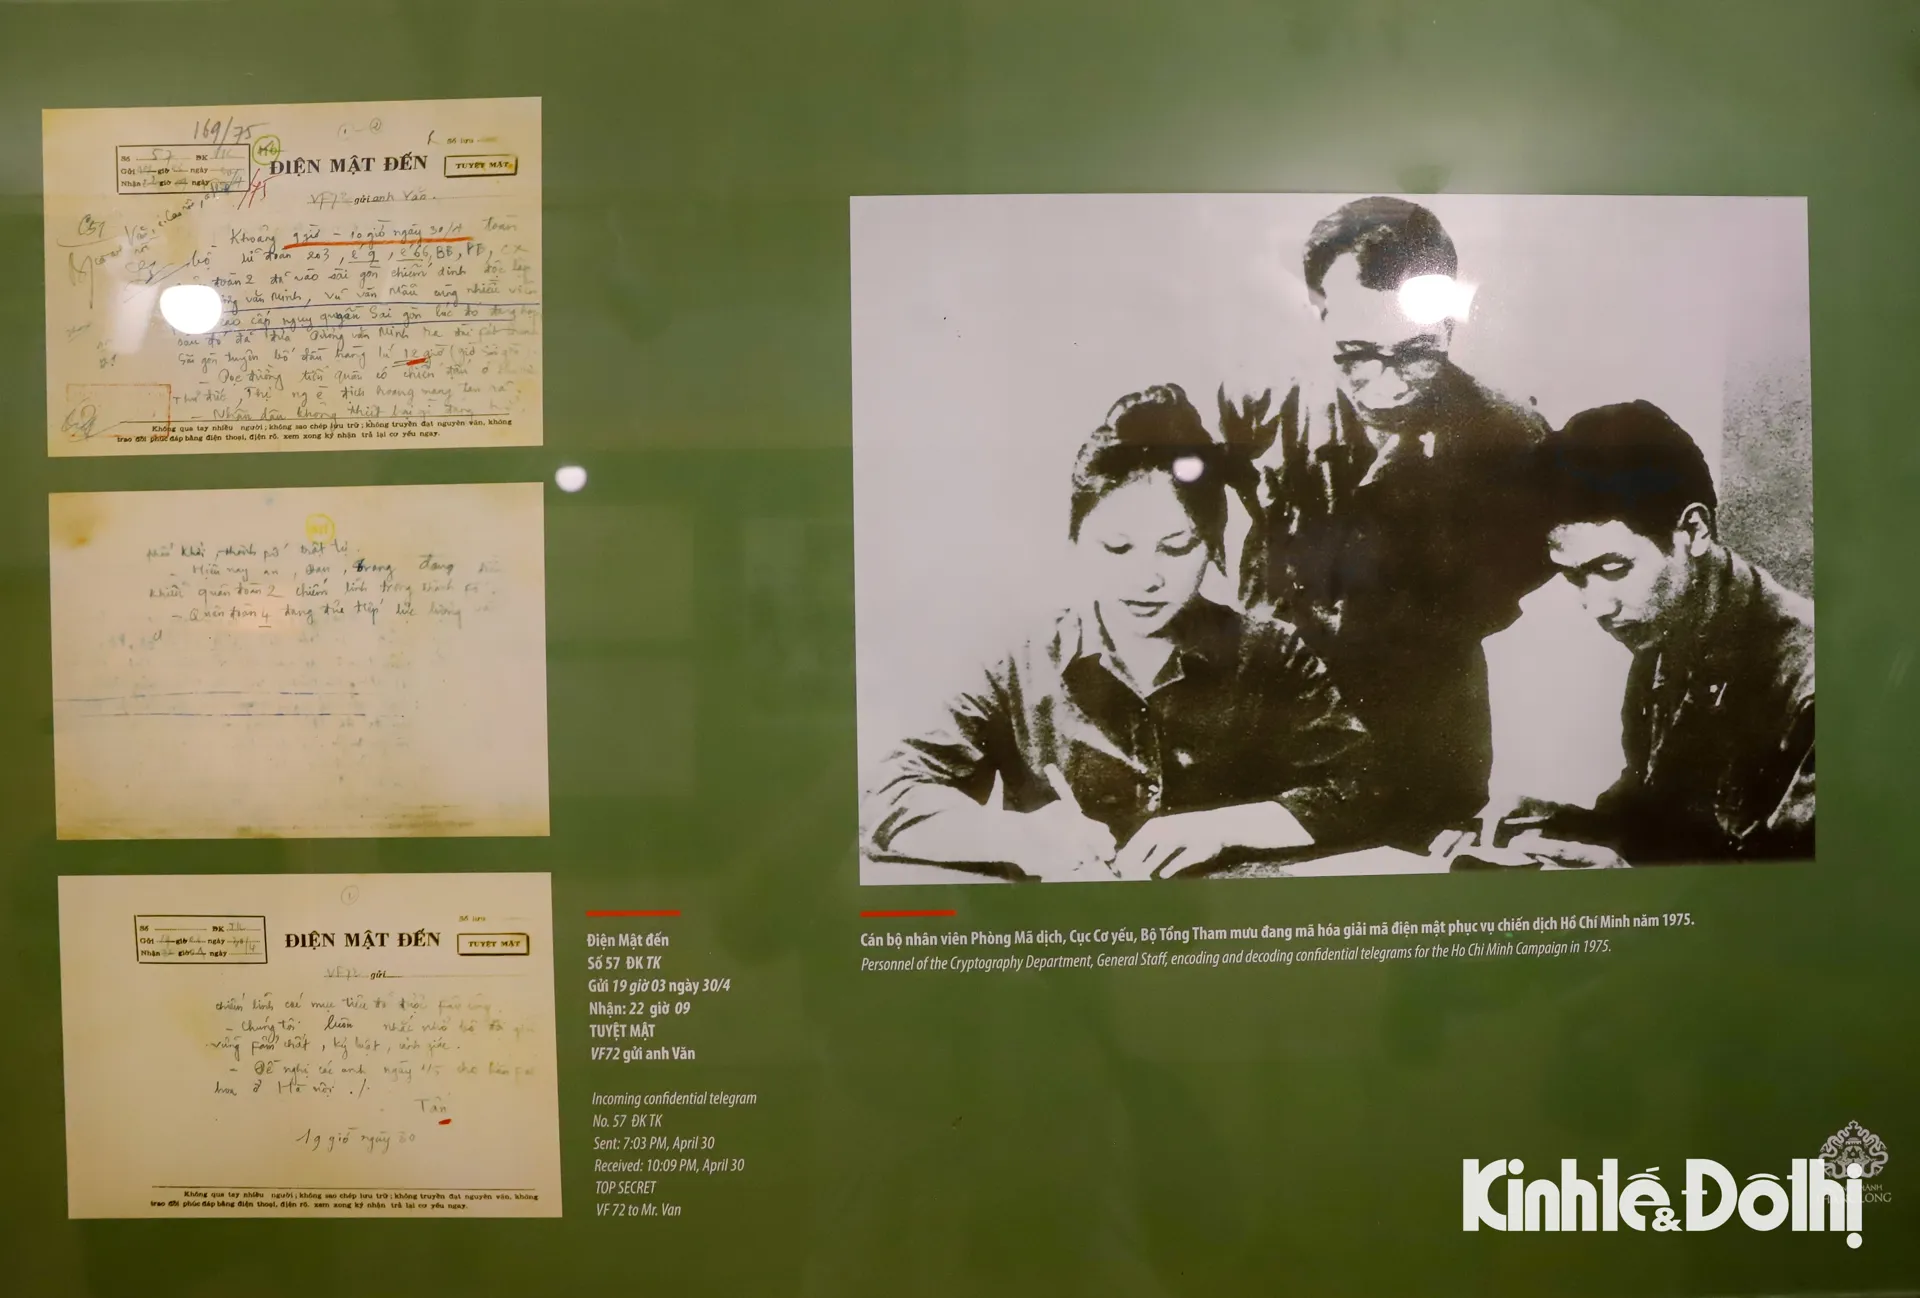 169/75
Số 57 ĐK TK
Gửi giờ ngày
Nhận giờ ngày
ĐIỆN MẬT ĐẾN
Số lưu
TUYỆT MẬT
VF72 gửi anh Văn.
Khoảng 9 giờ - 10 giờ ngày 30/4 toàn
bộ lữ đoàn 203, e 9, e 66, BB, PB,
đoàn 2 đã vào Sài gòn chiếm dinh độc lập
văn Minh, Vũ văn Mẫu cùng nhiều
cao cấp ngụy quyền Sài gòn lúc đó đang họp
sau đó đã đưa Dương văn Minh ra đài phát
Sài gòn tuyên bố đầu hàng lúc 12 giờ (giờ Sài gòn
- Dọc đường tiến quân có chiến đấu ở
Thủ đức, Thị nghè địch hoang mang tan rã
- Nhân dân không thiệt hại gì đang
Không qua tay nhiều người; không sao chép lưu trữ; không truyền đạt nguyên văn, không
trao đổi phúc đáp bằng điện thoại, điện rõ. xem xong ký nhận trả lại cơ yếu ngay.
phấn khởi, thành phố trật tự.
- Hiện nay an, Đan, đang
khiển quân đoàn 2 chiếm lĩnh trong thành phố
- Quân đoàn 4 đang đưa tiếp lực lượng
Số ĐK TK
Gửi 19 giờ ngày 30/4
Nhận giờ ngày
ĐIỆN MẬT ĐẾN
Số lưu
TUYỆT MẬT
VF72 gửi
chiếm lĩnh các mục tiêu đã được phân công.
- Chúng tôi luôn nhắc nhở bộ đội giữ
vững phẩm chất, kỷ luật, cảnh giác.
- Đề nghị các anh ngày 1/5 cho bắn pháo
hoa ở Hà nội ./.
Tấn
19 giờ ngày 30
Không qua tay nhiều người; không sao chép lưu trữ; không truyền đạt nguyên văn, không
trao đổi phúc đáp bằng điện thoại, điện rõ. xem xong ký nhận trả lại cơ yếu ngay.
Điện Mật đến
Số 57 ĐK TK
Gửi 19 giờ 03 ngày 30/4
Nhận: 22 giờ 09
TUYỆT MẬT
VF72 gửi anh Văn
Incoming confidential telegram
No. 57 ĐK TK
Sent: 7:03 PM, April 30
Received: 10:09 PM, April 30
TOP SECRET
VF 72 to Mr. Van
Cán bộ nhân viên Phòng Mã dịch, Cục Cơ yếu, Bộ Tổng Tham mưu đang mã hóa giải mã điện mật phục vụ chiến dịch Hồ Chí Minh năm 1975.
Personnel of the Cryptography Department, General Staff, encoding and decoding confidential telegrams for the Ho Chi Minh Campaign in 1975.
Kinh tế & Đô thị